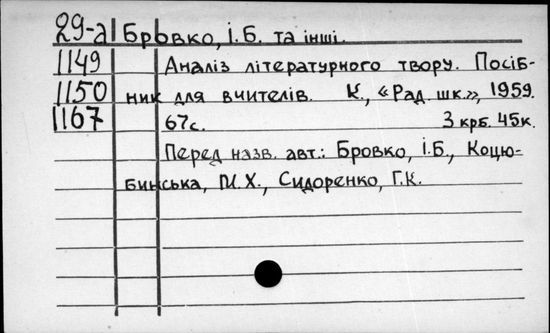 29-а Бровко, І.Б. та інші.
1149 Аналіз літературного твору. Посіб-
1150 ник для вчителів. К., «Рад. шк.», 1959.
1167 67с. 3 крб. 45к.
Перед назв. авт.: Бровко, І.Б., Коцю-
бинська, М.Х., Сидоренко, Г.К.